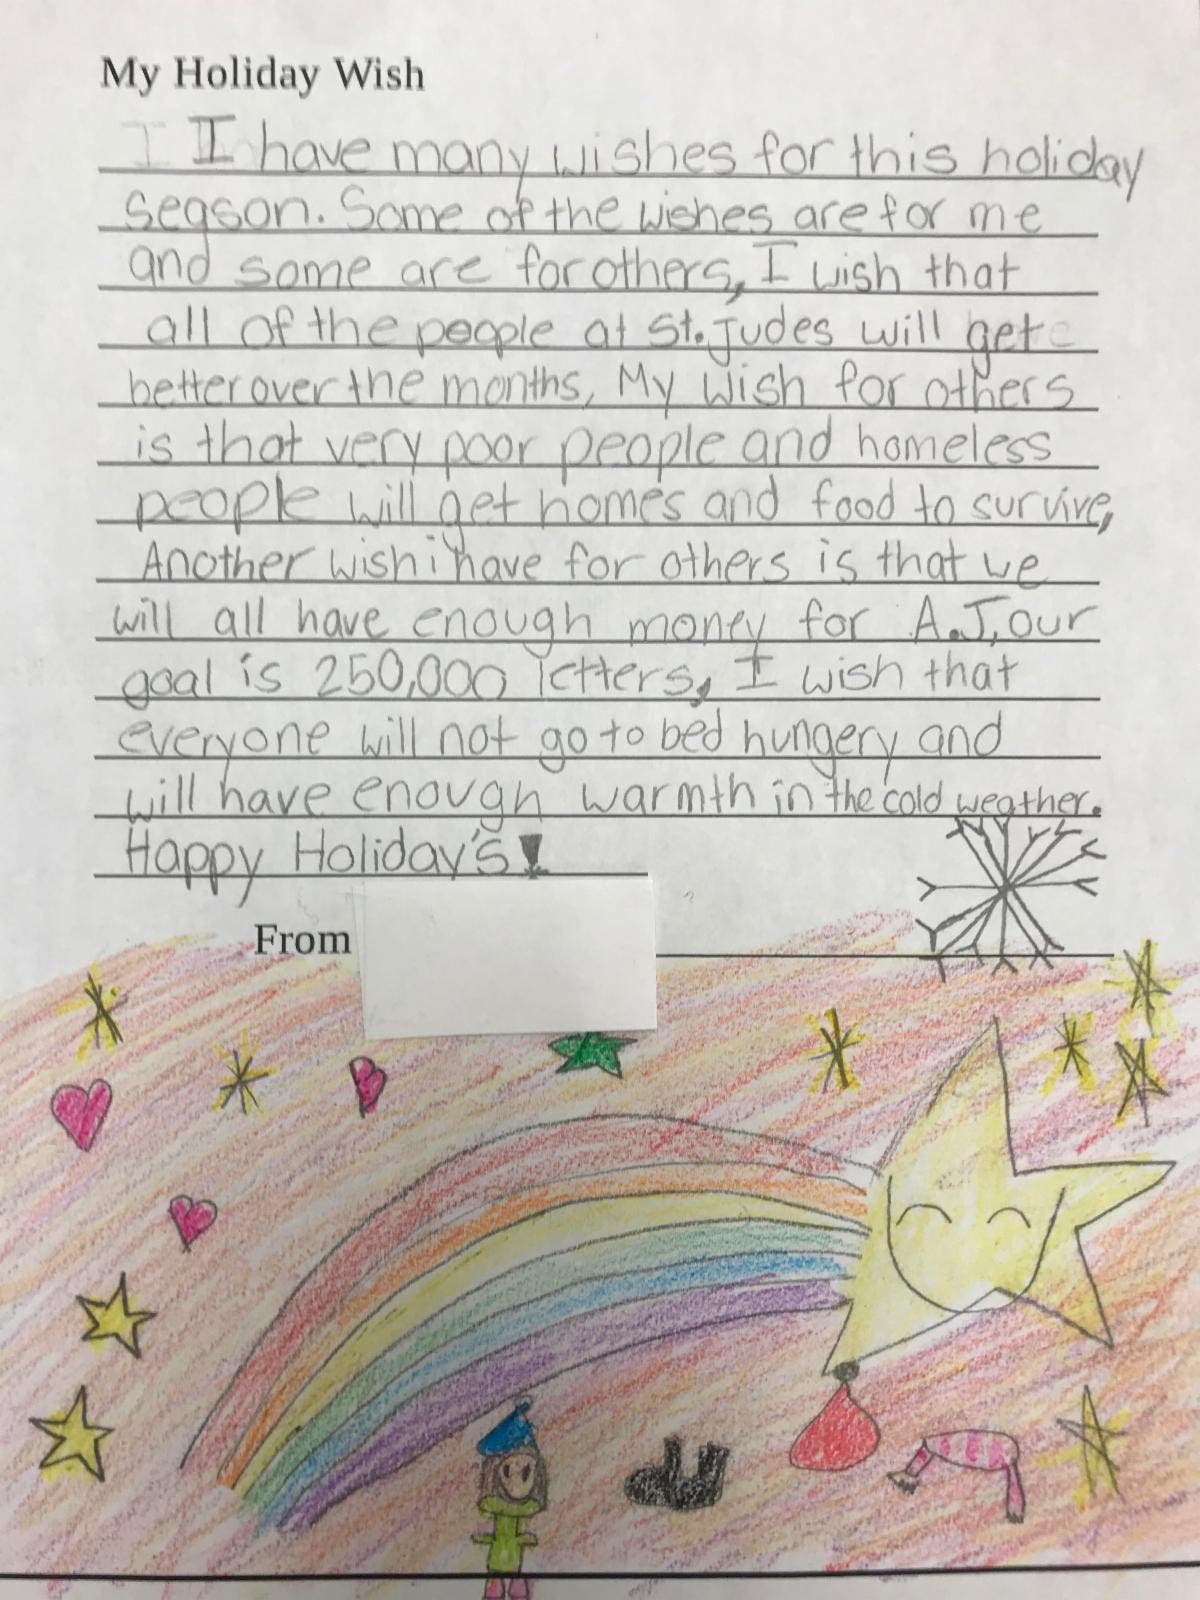 My Holiday Wish
I I have many wishes for this holiday
season. Some of the wishes are for me
and some are for others, I wish that
all of the people at St. Judes will get
better over the months, My wish for others
is that very poor people and homeless
people will get homes and food to survive,
Another wish i have for others is that we
will all have enough money for A.J, our
goal is 250,000 letters, I wish that
everyone will not go to bed hungery and
will have enough warmth in the cold weather.
Happy Holiday's!
From